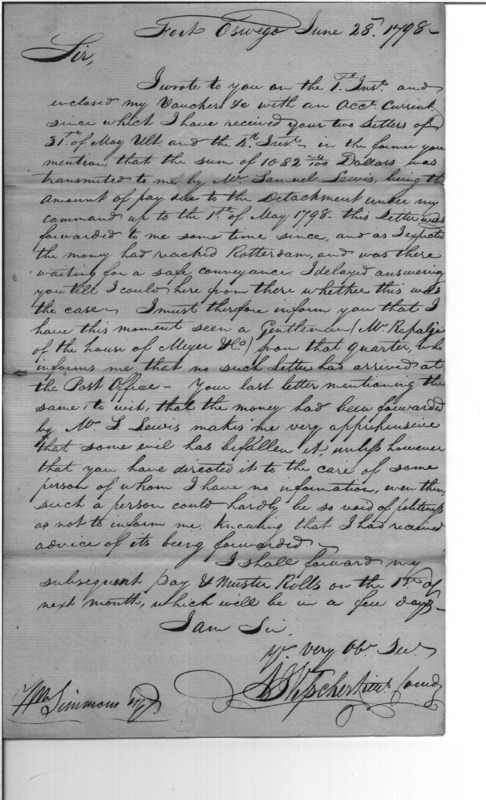 Fort Oswego June 28th. 1798-
Sir,
I wrote to you on the 7th. Inst. and
inclosed my Vouchers &c with an Acct. Current
since which I have received your two Letters of
31st. of May Ult. and the 4th. Inst. in the former you
mention that the sum of 1082 Dollars, was
transmitted to me by Mr. Samuel Lewis, being the
amount of pay due to the Detachment under my
command up to the 1st. of May 1798 - this Letter was
forwarded to me some time since, and as I expected
the money had reached Rotterdam, and was there
waiting for a safe conveyance I delayed answering
you till I could here from there whether this was
the case - I must therefore inform you that I
have this moment seen a Gentleman (Mr. Rapalge
of the house of Meyer & Co) from that quarter, who
informs me that no such Letter had arrived at
the Post Office - Your last letter mentioning the
same, to wit, that the money had been forwarded
by Mr. S. Lewis makes me very apprehensive
that some evil has befallen it, unless however
that you have directed it to the care of some
person of whom I have no information, even then
such a person could hardly be so void of politeness
as not to inform me, knowing that I had received
advice of its being forwarded -
I shall forward my
subsequent pay & Muster Rolls on the 1st. of
next month, which will be in a few days -
I am Sir.
Yr. very Ob. Serv.
Comdg
Wm. Simmons Esq.